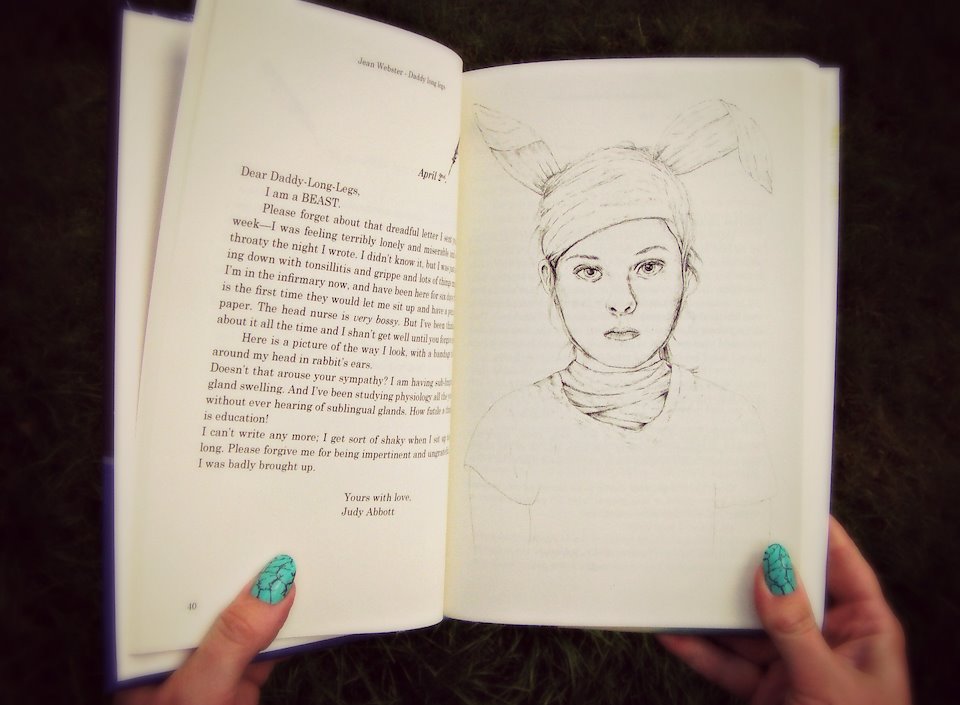 Jean Webster - Daddy long legs
April 2nd,
Dear Daddy-Long-Legs,
I am a BEAST.
Please forget about that dreadful letter I sent
week—I was feeling terribly lonely and miserable
throaty the night I wrote. I didn't know it, but I was
ing down with tonsillitis and grippe and lots of things
I'm in the infirmary now, and have been here for six
is the first time they would let me sit up and have a
paper. The head nurse is very bossy. But I've been
about it all the time and I shan't get well until you
Here is a picture of the way I look, with a bandage
around my head in rabbit's ears.
Doesn't that arouse your sympathy? I am having
gland swelling. And I've been studying physiology all the
without ever hearing of sublingual glands. How futile a
is education!
I can't write any more; I get sort of shaky when I sit up
long. Please forgive me for being impertinent and
I was badly brought up.
Yours with love.
Judy Abbott
40